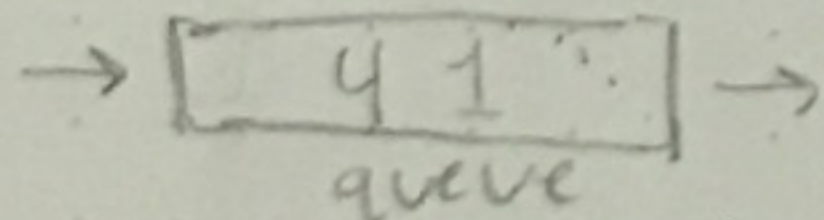 4 1
queue